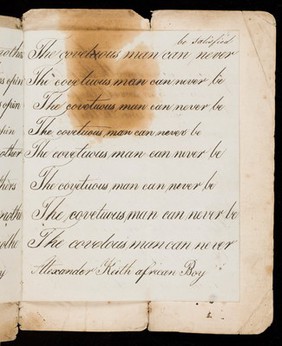 be satisfied
The covetuous man can never
The covetuous man can never be
The covetuous man can never be
The covetuous man can never be
The covetuous man can never be
The covetuous man can never be
The covetuous man can never be
The covetous man can never
Alexander Keith african Boy